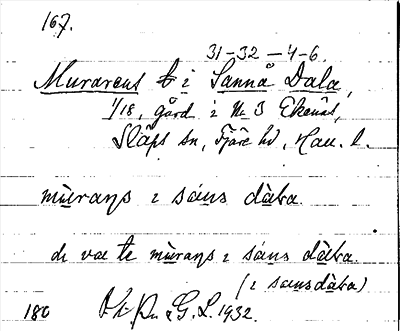 167.
31-32-4-6.
Murarens t i Sannå Dala,
1/18, gård i № 3 Ekenäs,
Släps sn, Fjäre hd, Hall. l.
mùraṇs i sáns dàɫa.
di vaɫ te mùraṇs i sáns dàɫa.
(i sansdàɫa)
180 G. L. 1932.